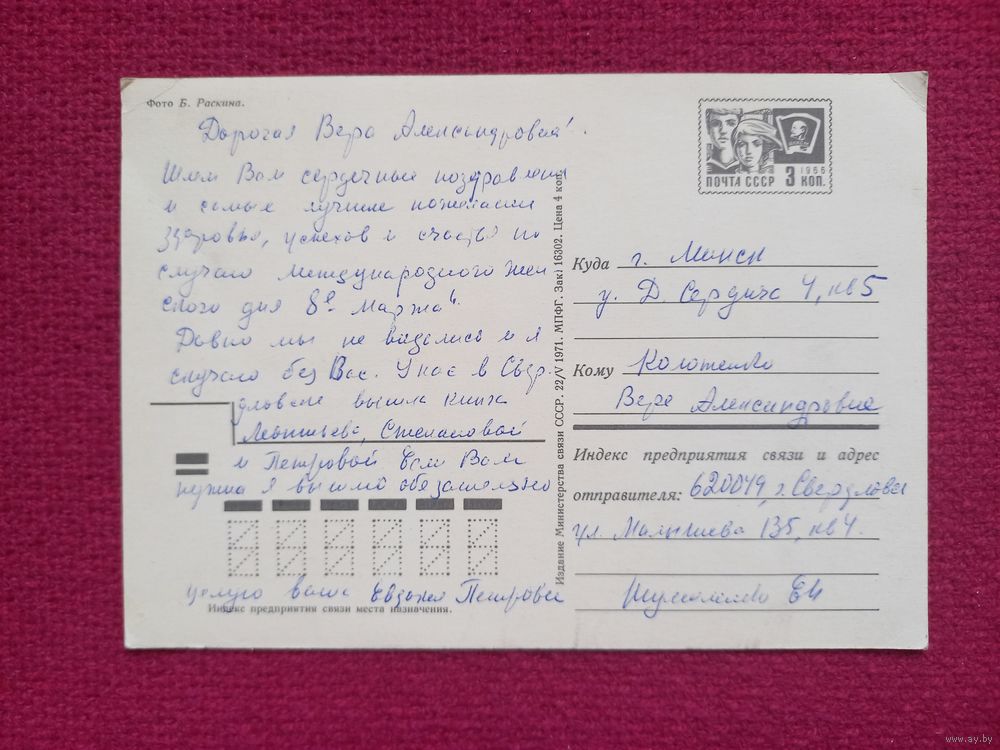 Фото Б. Раскина.
Дорогая Вера Александровна!
Шлем Вам сердечные поздравления
и самые лучшие пожелания
здоровья, успехов и счастья по
случаю международного жен
ского дня 8е Марта".
Давно мы не виделись и я
скучаю без Вас. У нас в Свер
дловске вышла книга
Леонтьева, Степановой
и Петровой Если Вам
нужна я вышлю обязательно
целую ваша Евгения Петровна
Индекс предприятия связи места назначения.
Издание Министерства связи СССР. 22/V 1971. МПФГ. Зак. 16302. Цена 4 коп.
1966
ПОЧТА СССР 3 КОП.
Куда г. Минск
у. Д. Сердича 4, кв 5
Кому
Вере Александровне
Индекс предприятия связи и адрес
отправителя: 620049, г. Свердловск
ул. Малышева 135, кв 4.
Ев
www.ay.by